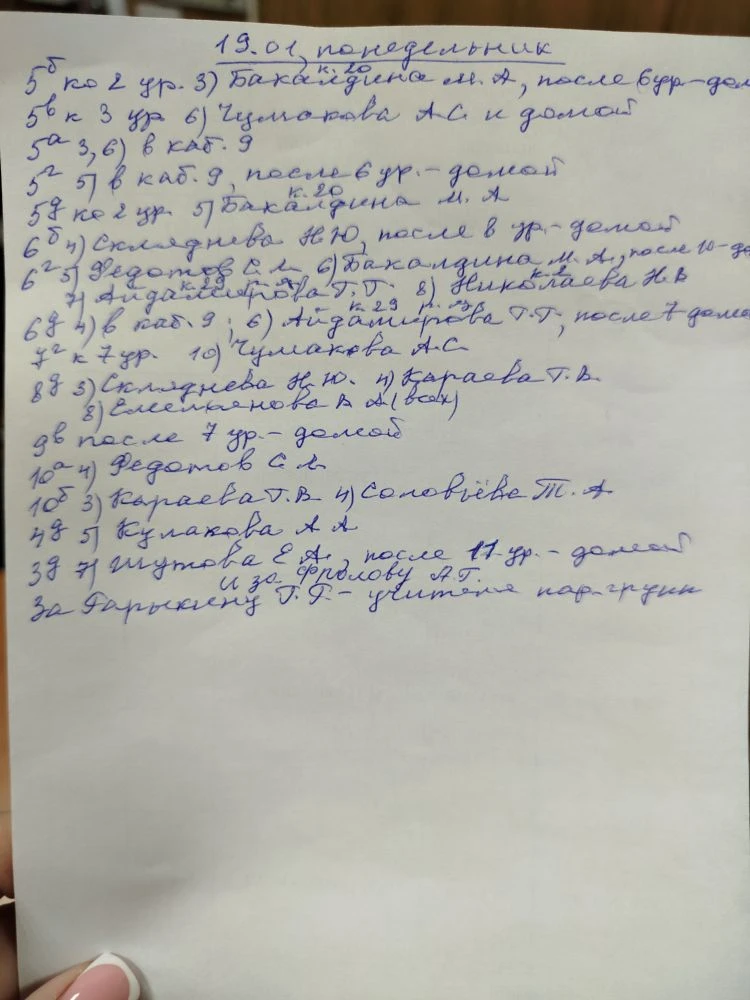 19.01, понедельник
5б ко 2 ур. 3) Бакалдина М. А, после 6 ур-дом
к. 20
5в к 3 ур 6) Чумакова А.С. и домой
5а 3, 6) в каб. 9
5г 5) в каб. 9, после 6 ур.- домой
к. 20
5д ко 2 ур. 5) Бакалдина М. А
6б 4) Скляднева Н.Ю, после 8 ур.- домой
6г 5) Федотов С.Л, 6) Бакалдина М. А., после 10-до
к. 29 к. 2
7) Айдамирова Г.Г. 8) Николаева Н.В
к. 29
6д 4) в каб. 9; 6) Айдамирова Г.Г, после 7 домо
7г к 7 ур. 10) Чумакова А.С.
8д 3) Скляднева Н.Ю. 4) Караева Т.В.
8) Емельянова В А (все)
9в после 7 ур.- домой
10а 4) Федотов С Л
10б 3) Караева Т.В 4) Соловьёва Т. А
4д 5) Кулакова А А
3д 7) Шутова Е.А., после 11 ур.- домой
и за Фролову А.Г.
За Гарькину Г.Г.- учителя пар. групп